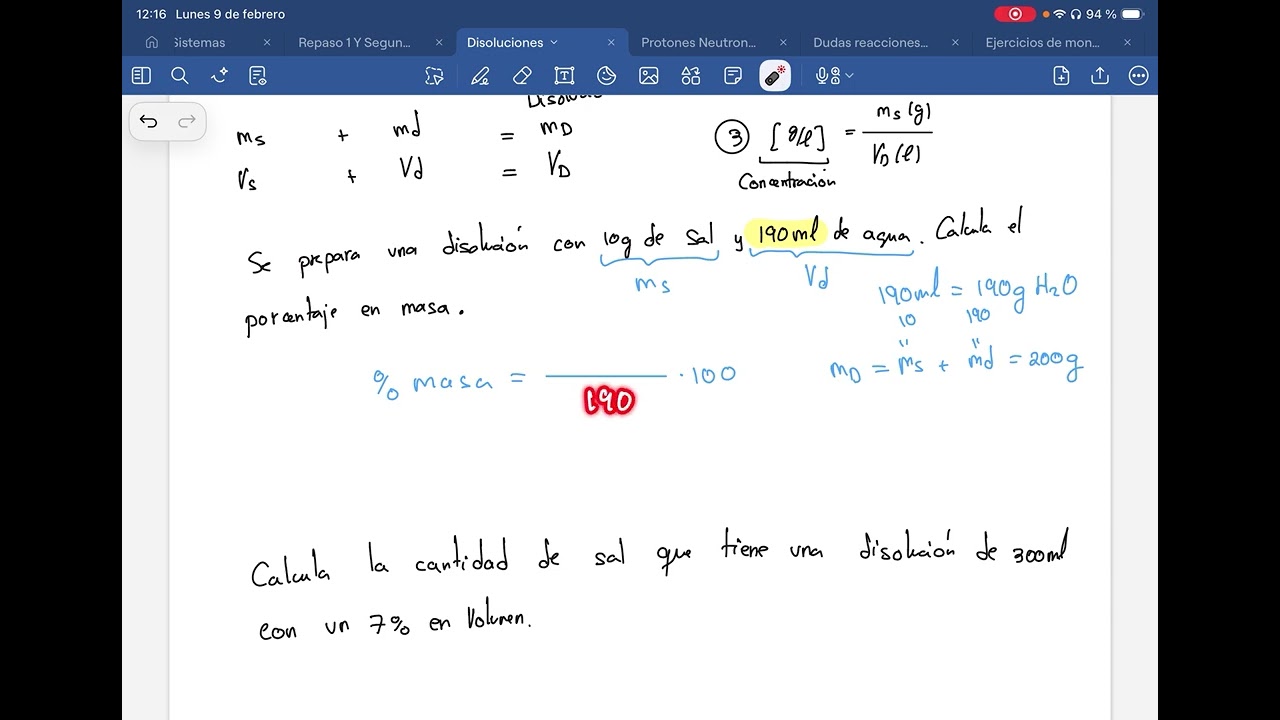 12:16 Lunes 9 de febrero 94 %
Sistemas Repaso 1 Y Segun... Disoluciones Protones Neutron... Dudas reacciones... Ejercicios de mon...
ms + md = mD
Vs + Vd = VD
3 [g/l] = ms (g) / VD (l)
Concentración
Se prepara una disolución con 10g de sal y 190ml de agua. Calcula el
ms Vd
porcentaje en masa.
190ml = 190g H2O
10 190
" "
% masa = ―――― · 100
190
mD = ms + md = 200g
Calcula la cantidad de sal que tiene una disolución de 300ml
con un 7% en Volumen.